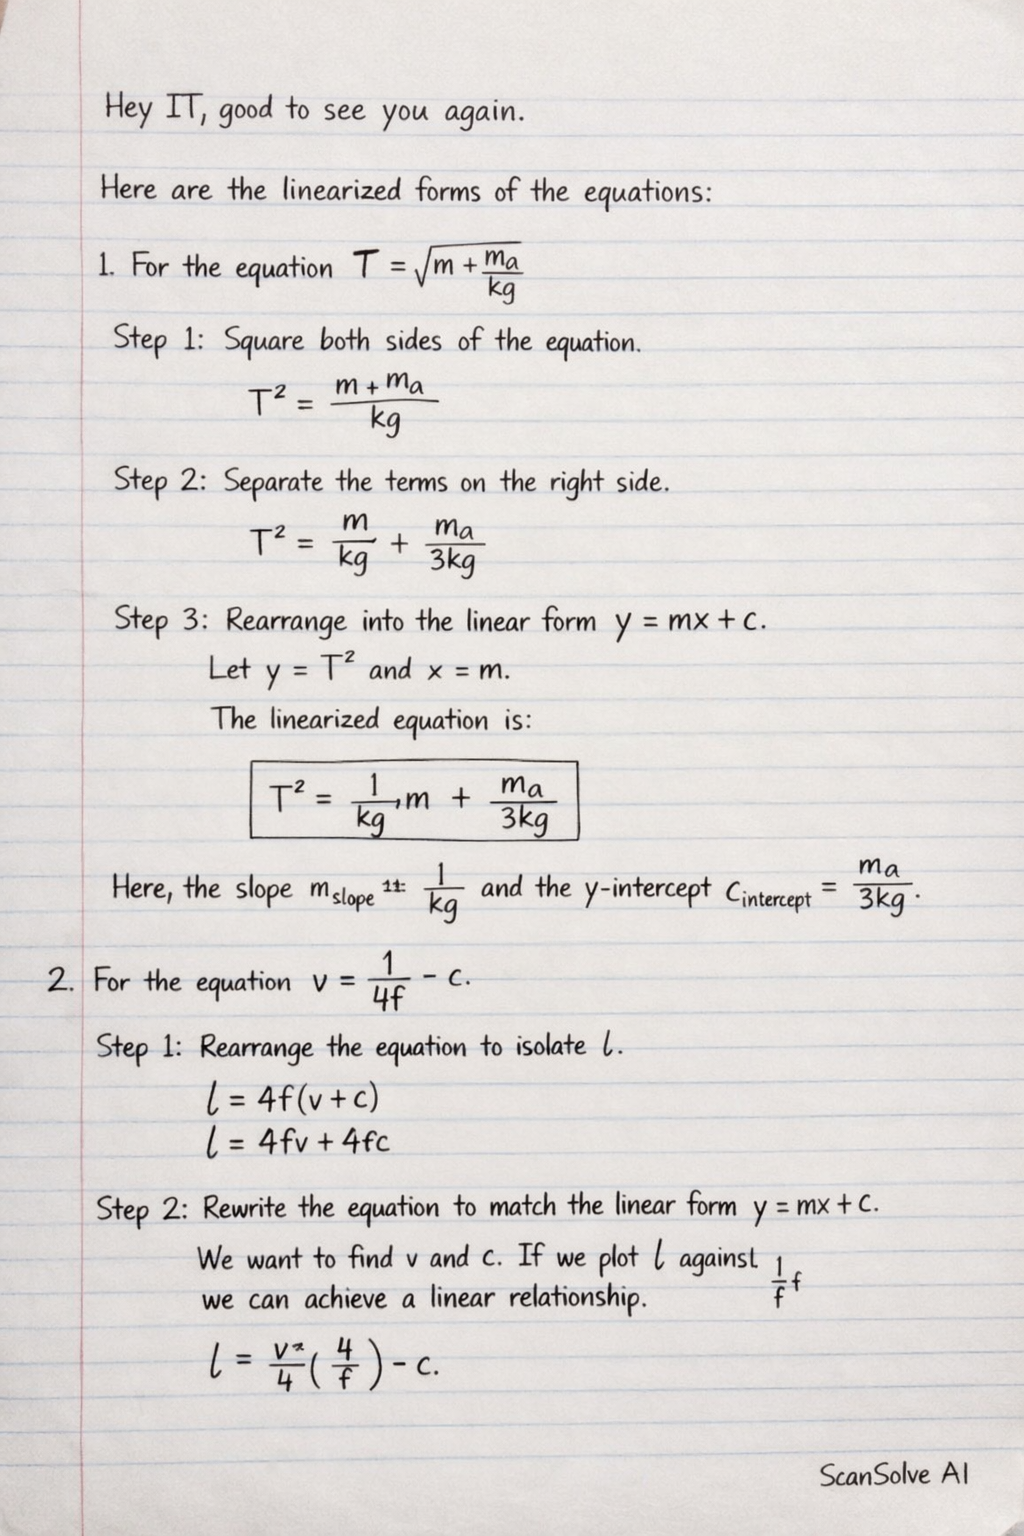 Hey IT, good to see you again.
Here are the linearized forms of the equations:
1. For the equation T = √(m + ma/kg)
Step 1: Square both sides of the equation.
T² = (m + ma)/kg
Step 2: Separate the terms on the right side.
T² = m/kg + ma/3kg
Step 3: Rearrange into the linear form y = mx + c.
Let y = T² and x = m.
The linearized equation is:
T² = 1/kg, m + ma/3kg
Here, the slope m slope = 1/kg and the y-intercept c intercept = ma/3kg.
2. For the equation v = 1/4f - c.
Step 1: Rearrange the equation to isolate l.
l = 4f(v + c)
l = 4fv + 4fc
Step 2: Rewrite the equation to match the linear form y = mx + c.
We want to find v and c. If we plot l against 1/f f
we can achieve a linear relationship.
l = v/4 (4/f) - c.
ScanSolve AI